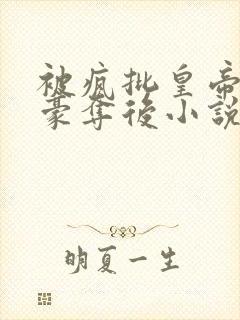 被疯批皇帝
豪夺後小説
明夏一生